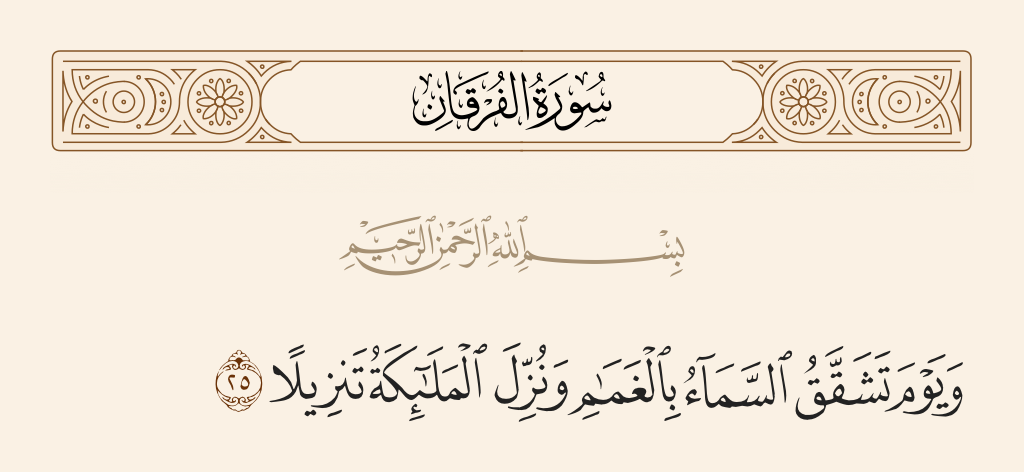 سُورَةُ الفُرْقَانِ
بِسْمِ ٱللَّهِ ٱلرَّحْمَٰنِ ٱلرَّحِيمِ
وَيَوْمَ تَشَقَّقُ ٱلسَّمَآءُ بِٱلْغَمَٰمِ وَنُزِّلَ ٱلْمَلَٰٓئِكَةُ تَنزِيلًا ٢٥